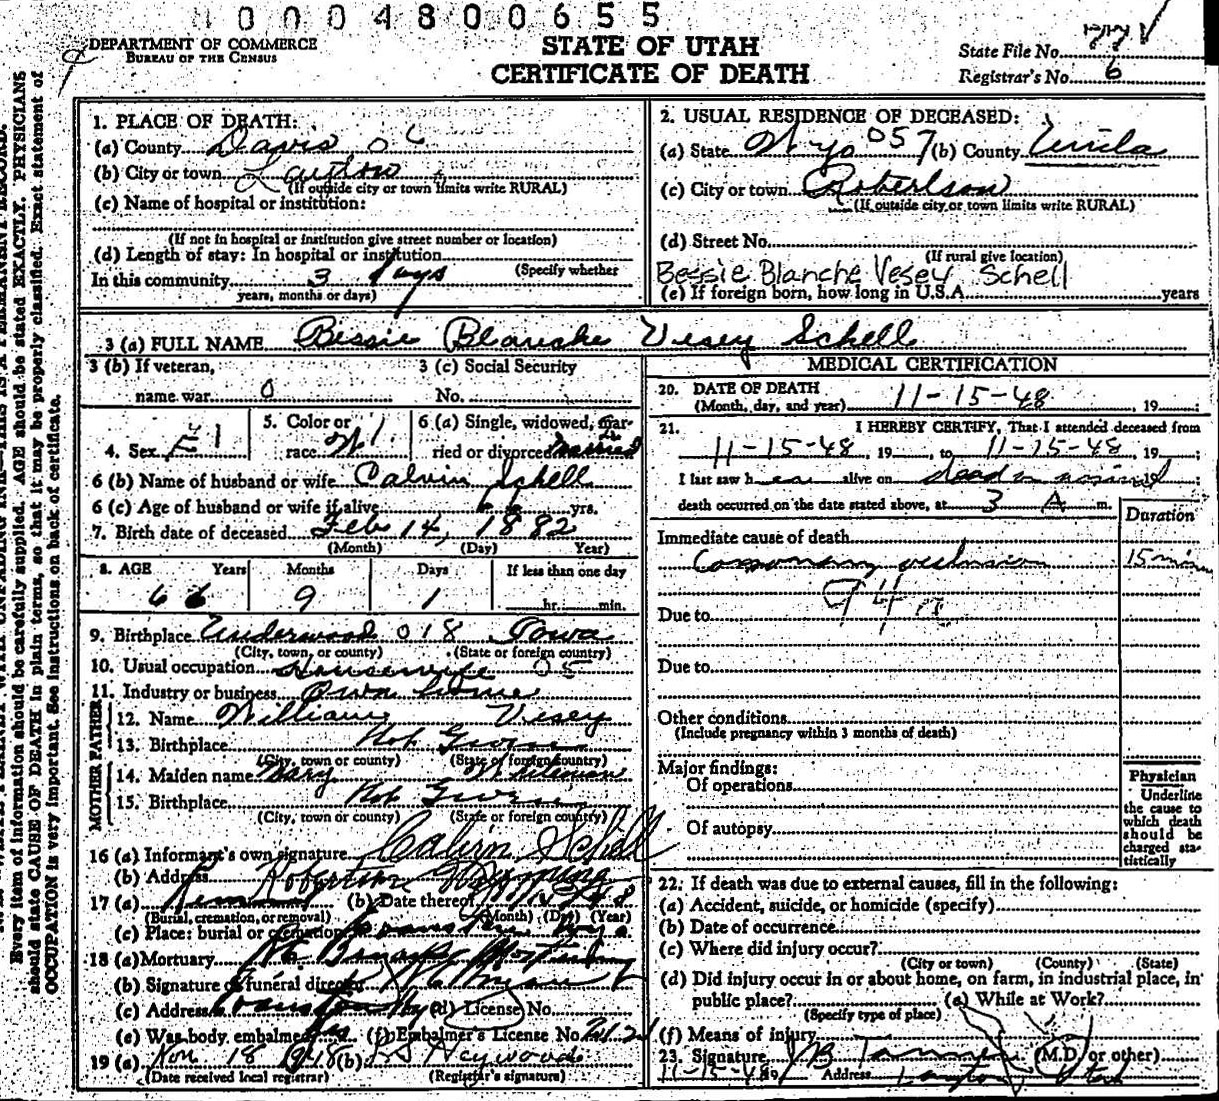 0004800655
DEPARTMENT OF COMMERCE
BUREAU OF THE CENSUS
STATE OF UTAH
CERTIFICATE OF DEATH
State File No.
Registrar's No. 6
Every item of information should be carefully supplied. AGE should be stated EXACTLY. PHYSICIANS
should state CAUSE OF DEATH in plain terms, so that it may be properly classified. Exact statement of
OCCUPATION is very important. See instructions on back of certificate.
1. PLACE OF DEATH:
(a) County Davis 06
(b) City or town Layton
(If outside city or town limits write RURAL)
(c) Name of hospital or institution:
(If not in hospital or institution give street number or location)
(d) Length of stay: In hospital or institution
(Specify whether
In this community 3 days
years, months or days)
2. USUAL RESIDENCE OF DECEASED:
(a) State Wyo 057 (b) County Uinta
(c) City or town Robertson
(If outside city or town limits write RURAL)
(d) Street No.
(If rural give location)
Bessie Blanche Vesey Schell
(e) If foreign born, how long in U.S.A. years
3 (a) FULL NAME Bessie Blanche Vesey Schell
3 (b) If veteran,
name war 0
3 (c) Social Security
No.
4. Sex F 1
5. Color or
race W 1
6 (a) Single, widowed, mar-
ried or divorced married
6 (b) Name of husband or wife Calvin Schell
6 (c) Age of husband or wife if alive yrs.
7. Birth date of deceased Feb 14, 1882
(Month) (Day) Year)
8. AGE Years Months Days If less than one day
66 9 1 hr. min.
9. Birthplace Underwood 018 Iowa
(City, town, or county) (State or foreign country)
10. Usual occupation Housewife 05
11. Industry or business Own home
FATHER
12. Name William Vesey
13. Birthplace Not Given
(City, town or county) (State or foreign country)
MOTHER
14. Maiden name Mary Whiteman
15. Birthplace Not Given
(City, town or county) (State or foreign country)
16 (a) Informant's own signature Calvin Schell
(b) Address Robertson Wyoming
17 (a) (b) Date thereof
(Burial, cremation, or removal) (Month) (Day) (Year)
(c) Place: burial or cremation Evanston Wyo
18 (a) Mortuary
(b) Signature of funeral director
(c) Address Evanston Wyo (d) License No.
(e) Was body embalmed yes (f) Embalmer's License No.
19 (a) Nov 18 (b) Heywood
(Date received local registrar) (Registrar's signature)
MEDICAL CERTIFICATION
20. DATE OF DEATH
(Month, day, and year) 11-15-48, 19
21. I HEREBY CERTIFY, That I attended deceased from
11-15-48, 19, to 11-15-48, 19;
I last saw her alive on dead on arrival;
death occurred on the date stated above, at 3 A m.
Duration
Immediate cause of death
Coronary occlusion 15 min
94a
Due to
Due to
Other conditions
(Include pregnancy within 3 months of death)
Major findings:
Of operations
Of autopsy
Physician
Underline
the cause to
which death
should be
charged sta-
tistically
22. If death was due to external causes, fill in the following:
(a) Accident, suicide, or homicide (specify)
(b) Date of occurrence
(c) Where did injury occur?
(City or town) (County) (State)
(d) Did injury occur in or about home, on farm, in industrial place, in
public place? (e) While at Work?
(Specify type of place)
(f) Means of injury
23. Signature (M.D. or other)
11-15-48 Address Layton Utah